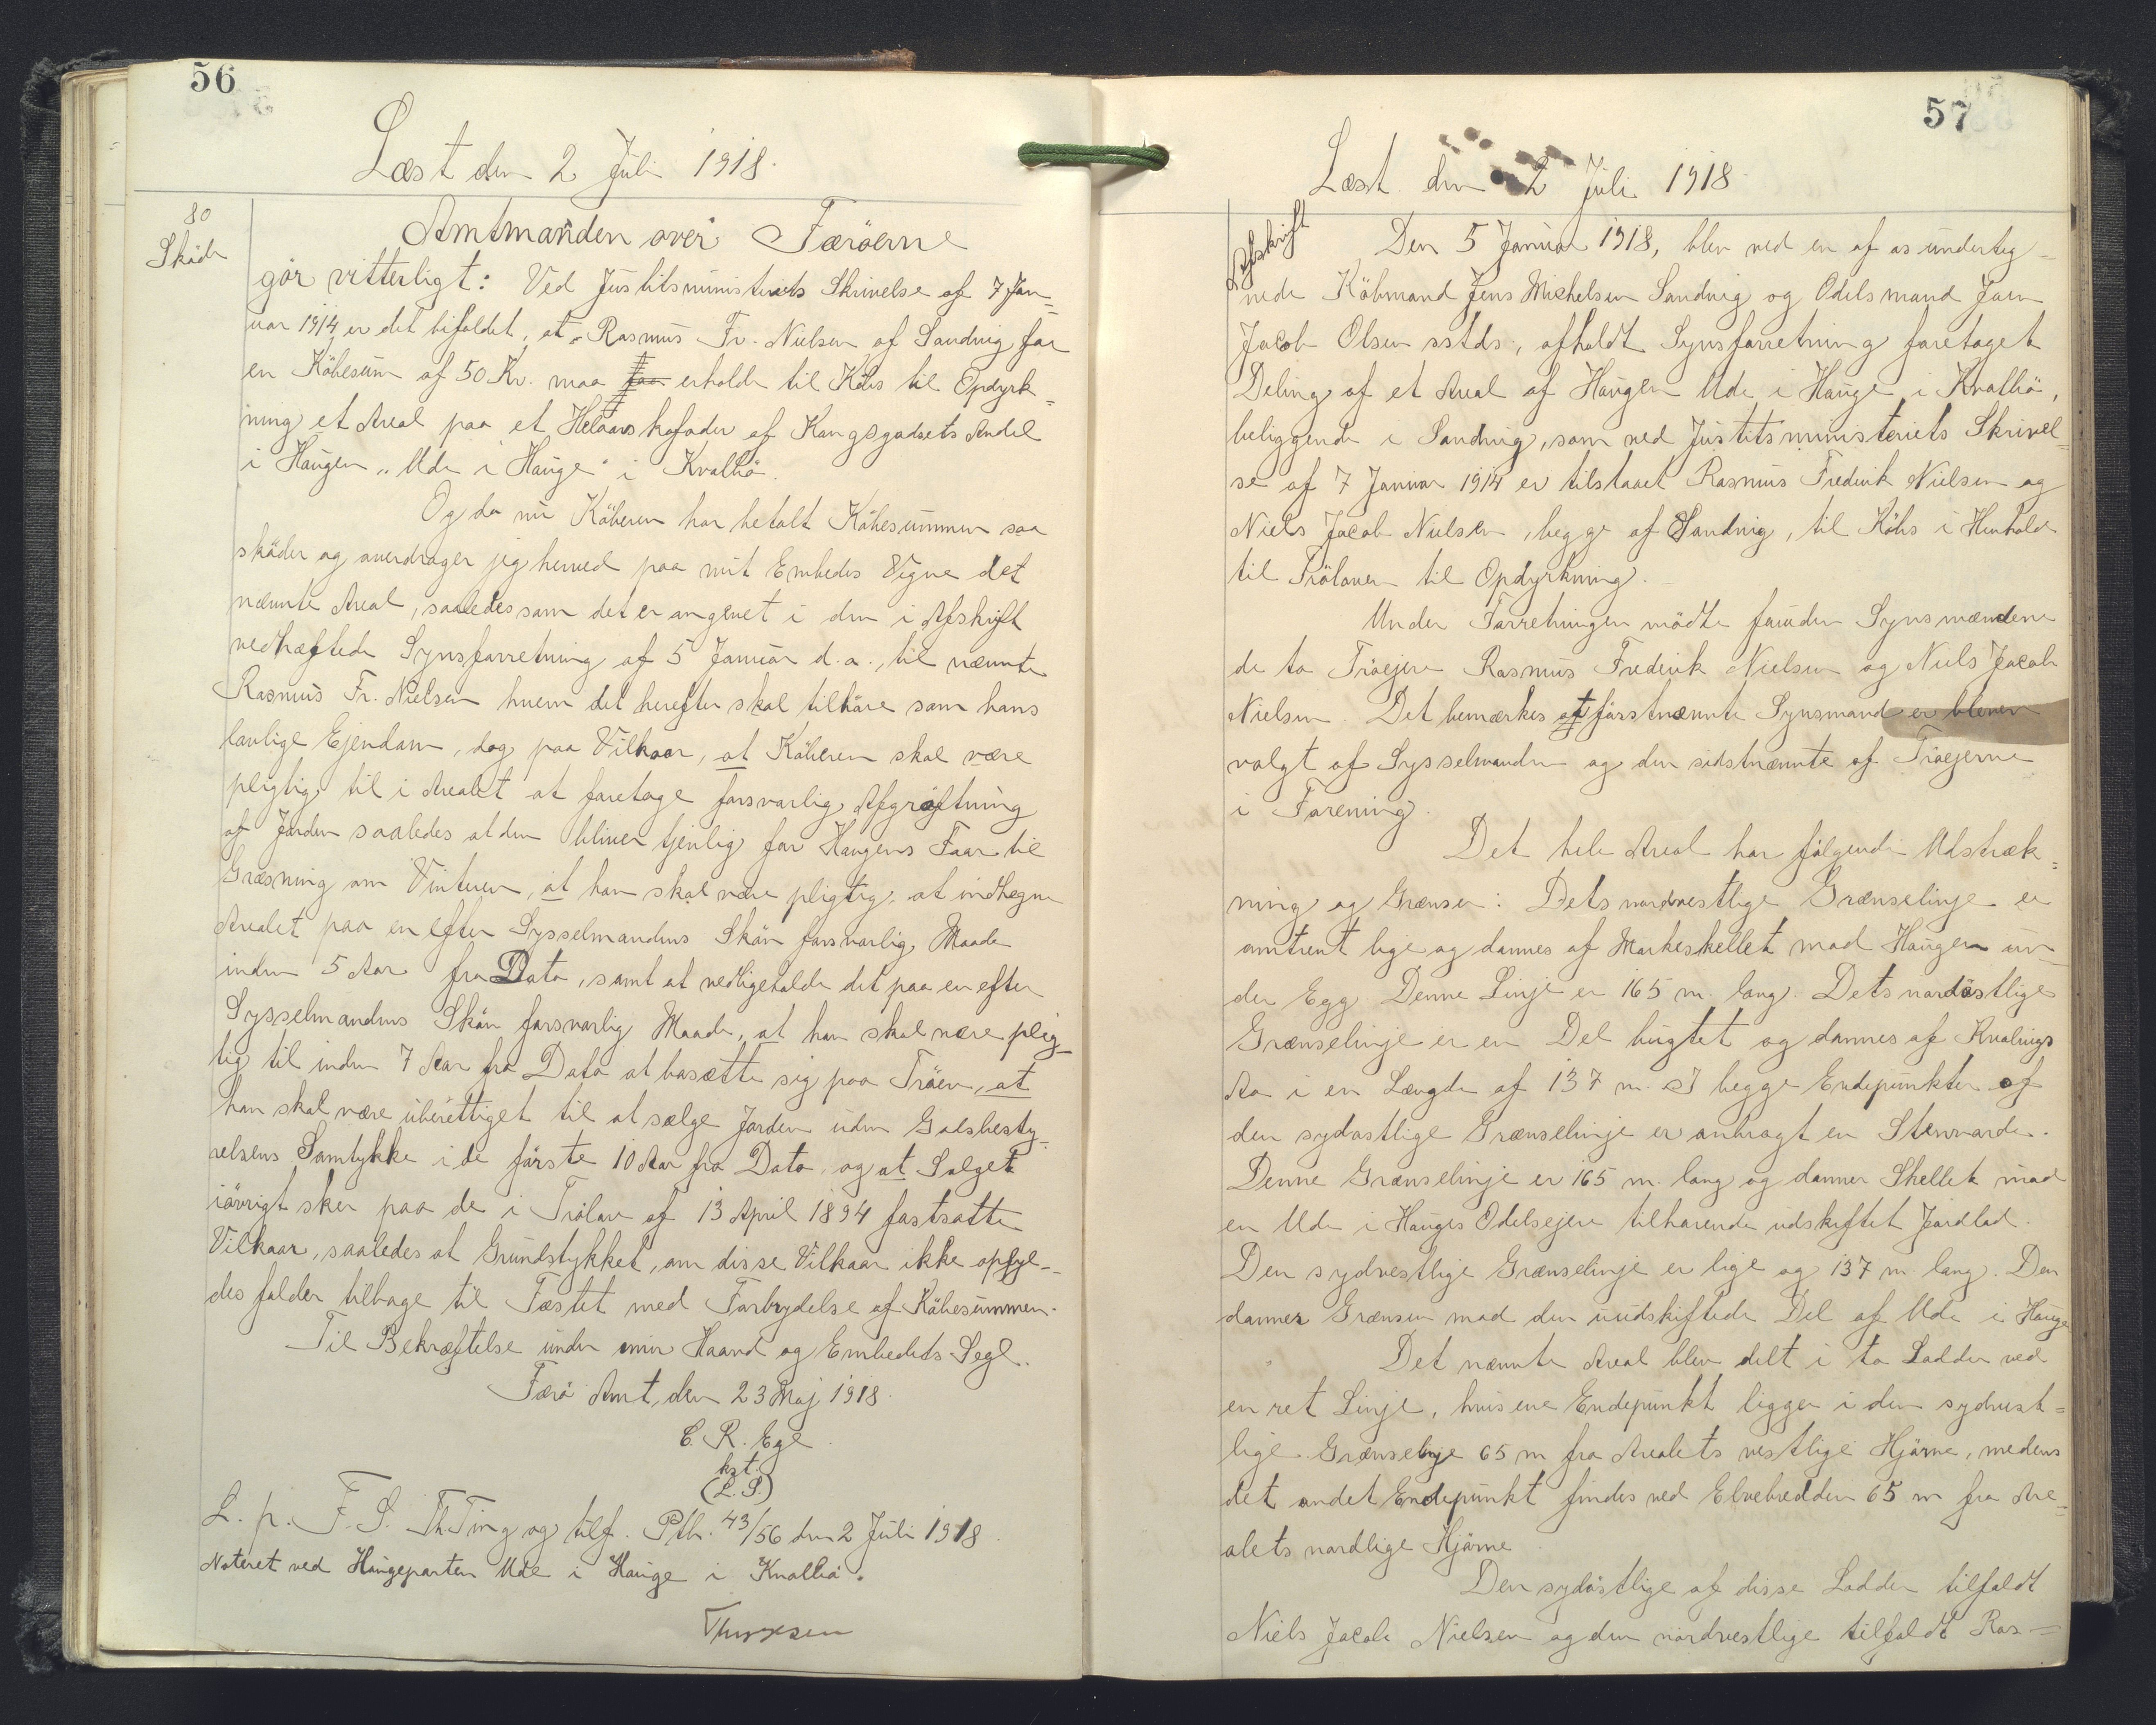 56
Læst den 2 Juli 1918.
80
Skøde
Amtmanden over Færöerne
gör vitterligt: Ved Justitsministeriets Skrivelse af 7 Jan-
uar 1914 er det bifaldet, at Rasmus Fr. Nielsen af Sandvig for
en Köbesum af 50 Kr. maa faa erholde til Köbs til Opdyrk=
ning et Areal paa et Helaars kofoder af Kongsgodsets Andel
i Haugen "Ude i Hauge" i Kvalbö.
Og da nu Köberen har betalt Köbesummen saa
sköder og overdrager jeg herved paa mit Embedes Vegne det
nævnte Areal, saaledes som det er angivet i den i Afskrift
vedhæftede Synsforretning af 5 Januar d.a., til nævnte
Rasmus Fr. Nielsen hvem det herefter skal tilhöre som hans
lovlige Ejendom, dog paa Vilkaar, at Köberen skal være
pligtig til i Arealet at foretage forsvarlig Afgröftning
af Jorden saaledes at den bliver tjenlig for Haugens Faar til
Græsning om Vinteren, at han skal være pligtig at indhegne
Arealet paa en efter Sysselmandens Skön forsvarlig Maade
inden 5 Aar fra Dato, samt at vedligeholde det paa en efter
Sysselmandens Skön forsvarlig Maade, at han skal være plig-
tig til inden 7 Aar fra Dato at bosætte sig paa Tröen, at
han skal være uberettiget til at sælge Jorden uden Godsbesty-
relsens Samtykke i de förste 10 Aar fra Dato, og at Salget
iövrigt sker paa de i Trölov af 13 April 1894 fastsatte
Vilkaar, saaledes at Grundstykket, om disse Vilkaar ikke opfyl-
des falder tilbage til Fæstet med Forbrydelse af Köbesummen.
Til Bekræftelse under min Haand og Embedets Segl.
Færö Amt, den 23 Maj 1918.
C. R. Ege
kst.
(L.S.)
L. p. F. S. Th. Ting og tilf. Ptb. 43/56 den 2 Juli 1918.
Noteret ved Haugeparten Ude i Hauge i Kvalbö.
57
Læst den 2 Juli 1918
Afskrift
Den 5 Januar 1918, blev ved en af os underteg-
nede Köbmand Jens Michelsen Sandvig og Odelsmand Joen
Jacob Olsen sstds., afholdt Synsforretning foretaget
Deling af et Areal af Haugen Ude i Hauge i Kvalbö,
beliggende i Sandvig, som ved Justitsministeriets Skrivel-
se af 7 Januar 1914 er tilstaaet Rasmus Frederik Nielsen og
Niels Jacob Nielsen, begge af Sandvig, til Köbs i Henhold
til Tröloven til Opdyrkning.
Under Forretningen mödte foruden Synsmændene
de to Tröejere Rasmus Frederik Nielsen og Niels Jacob
Nielsen. Det bemærkes at förstnævnte Synsmand er bleven
valgt af Sysselmanden og den sidstnævnte af Tröejerne
i Forening.
Det hele Areal har fölgende Udstræk=
ning og Grænser: Dets nordvestlige Grænselinje er
omtrent lige og dannes af Markeskellet mod Haugen un-
der Egg. Denne Linje er 165 m. lang. Dets nordöstlige
Grænselinje er en Del bugtet og dannes af Kvalvigs
Aa i en Længde af 137 m. I begge Endepunkter af
den sydöstlige Grænselinje er anbragt en Stenvarde.
Denne Grænselinje er 165 m. lang og danner Skellet mod
en Ude i Hauges Odelsejere tilhörende udskiftet Jordlod.
Den sydvestlige Grænselinje er lige og 137 m lang. Den
danner Grænsen mod den uudskiftede Del af Ude i Hauge
Det nævnte Areal blev delt i to Lodder ved
en ret Linje, hvis ene Endepunkt ligger i den sydvest=
lige Grænselinje 65 m fra Arealets vestlige Hjörne, medens
det andet Endepunkt findes ved Elvebredden 65 m fra Are=
alets nordlige Hjörne
Den sydöstlige af disse Lodder tilfaldt
Niels Jacob Nielsen og den nordvestlige tilfaldt Ras=